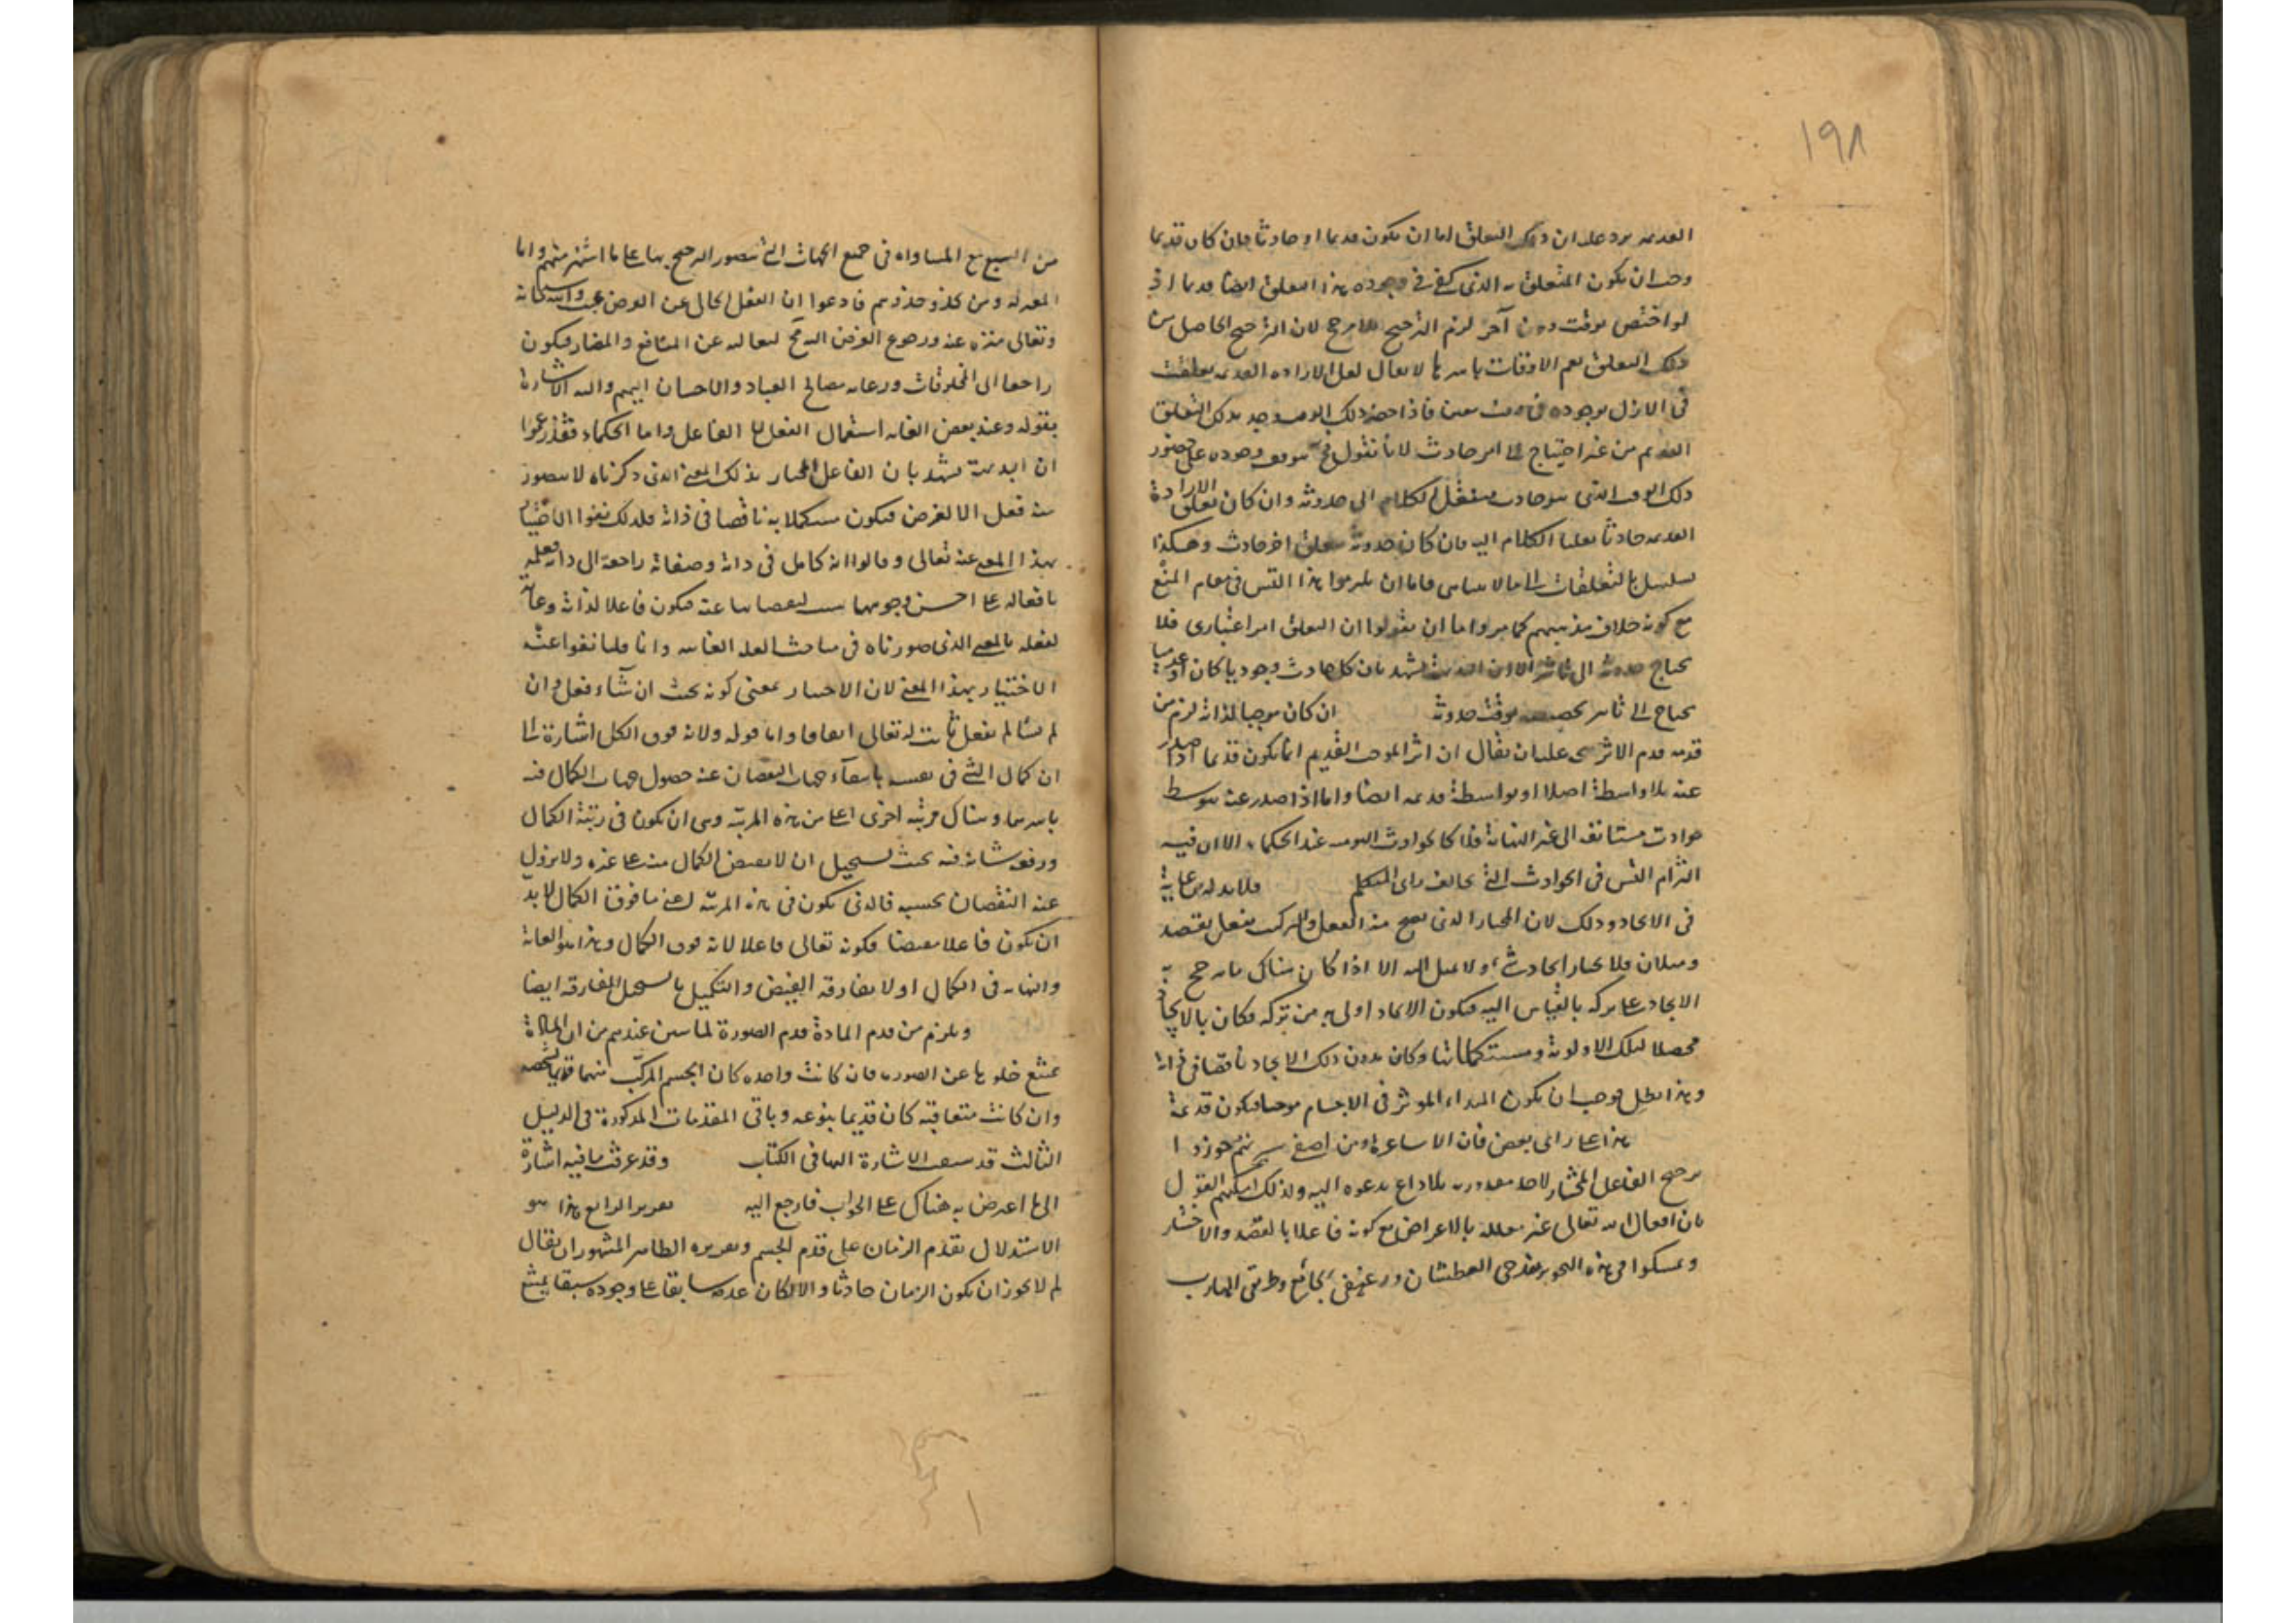 ١٩٨
القديمة يرد عليه ان ذلك التعلق اما ان يكون قديما او حادثا فان كان قديما
وجب ان يكون المتعلق به الذي كفى في وجوده هذا التعلق ايضا قديما اذ
لو اختص بوقت دون آخر لزم الترجيح بلا مرجح لان الترجيح الحاصل من
ذلك التعلق يعم الاوقات باسرها لا يقال لعل الارادة القديمة تعلقت
في الازل بوجوده في وقت معين فاذا حضر ذلك الوقت وجد بذلك التعلق
القديم من غير احتياج الى امر حادث لانا نقول فح يتوقف وجوده على حضور
ذلك الوقت الذي هو حادث فينتقل الكلام الى حدوثه وان كان تعلق الارادة
القديمة حادثا نقلنا الكلام اليه فان كان حدوثه بتعلق اخر حادث وهكذا
تسلسل التعلقات الى ما لا يتناهى فاما ان يلتزموا هذا التس في مقام المنع
مع كونه خلاف مذهبهم كما مر واما ان يقولوا ان التعلق امر اعتباري فلا
يحتاج حدوثه الى تاثير الا ان البديهة تشهد بان كل حادث وجوديا كان او عدميا
يحتاج الى تاثير يخصصه بوقت حدوثه ان كان موجبا لذاته لزم من
قدمه قدم الاثر يتجه عليه ان يقال ان اثر الموجب القديم انما يكون قديما اذا صدر
عنه بلا واسطة اصلا او بواسطة قديمة ايضا واما اذا صدر عنه بتوسط
حوادث متسابقة الى غير النهاية فلا كالحوادث اليومية عند الحكماء الا ان فيه
التزام التس في الحوادث التي يخالف راى المتكلم فلا بد له من غاية
في الايجاد وذلك لان المختار الذي يصح منه الفعل والترك يفعل بقصد
وميلان فلا يختار الحادث ولا يميل اليه الا اذا كان هناك ما يرجح به
الايجاد على تركه بالقياس اليه فيكون الايجاد اولى به من تركه فكان بالايجاد
محصلا لتلك الاولوية ومستكملا بها وكان بدون ذلك الايجاد ناقصا في ذاته
وهذا بطل فوجب ان يكون المبداء المؤثر في الاجسام موجبا فيكون قديمة
هذا على راى بعض فان الاشاعرة ومن اصغى منهم جوزوا
ترجيح الفاعل المختار لاحد مقدوريه بلا داع يدعوه اليه ولذلك امكنهم القول
بان افعال الله تعالى غير معللة بالاغراض مع كونه فاعلا بالقصد والاختيار
وتمسكوا في هذه التجويز بقدحي العطشان ورغيفي الجائع وطريقي الهارب
من السبع مع المساواة في جميع الجهات التي يتصور الترجيح بها على ما اشتهر منهم واما
المعتزلة ومن حذا حذوهم فادعوا ان الفعل الخالي عن الغرض عبث وانه سبحانه
وتعالى منزه عنه ورجوع الغرض اليه مح لتعاليه عن المنافع والمضار فيكون
راجعا الى المخلوقات ورعاية مصالح العباد والاحسان اليهم واليه الاشارة
بقوله وعند بعض الغاية استعمال الفعل الفاعل واما الحكماء فقد زعموا
ان البديهة تشهد بان الفاعل المختار بذلك المعنى الذي ذكرناه لا يتصور
منه فعل الا لغرض فيكون مستكملا به ناقصا في ذاته فلذلك نفوا الاختيار
بهذا المعنى عنه تعالى وقالوا انه كامل في ذاته وصفاته راجعة الى ذاته فعلمه
بافعاله على احسن وجوهها سبب لفيضانها عنه فيكون فاعلا لذاته وغاية
لفعله بالمعنى الذي صورناه في مباحث العلة الغائية وانا قلنا نفوا عنه
الاختيار بهذا المعنى لان الاختيار بمعنى كونه بحيث ان شاء فعل وان
لم يشا لم يفعل ثابت له تعالى اتفاقا واما قوله ولانه فوق الكل اشارة الى
ان كمال الشئ في نفسه بانتفاء جهات النقصان عنه حصول جهات الكمال فيه
باسرها وهناك مرتبة اخرى اعلى من هذه المرتبة وهي ان يكون في رتبة الكمال
ورفعة شانه فيه بحيث يستحيل ان لا يفيض الكمال منه على غيره ولا يزول
عنه النقصان بحسبه فالذي يكون في هذه المرتبة اعنى ما فوق الكمال لا بد
ان يكون فاعلا مفيضا فكونه تعالى فاعلا لانه فوق الكمال وهذا هو الغاية
والنهاية في الكمال اولا يفارقه الفيض والتكميل بل يستحيل المفارقة ايضا
ويلزم من قدم المادة قدم الصورة لما تبين عندهم من ان المادة
يمتنع خلوها عن الصورة فان كانت واحدة كان الجسم المركب منهما قديما بشخصه
وان كانت متعاقبة كان قديما بنوعه وباقي المقدمات المذكورة في الدليل
الثالث قد سبقت الاشارة اليها في الكتاب وقد عرفت ما فيه اشارة
الى ما اعترض به هناك على الجواب فارجع اليه تقرير الرابع هذا هو
الاستدلال بقدم الزمان على قدم الجسم وتقريره الظاهر المشهور ان يقال
لم لا يجوز ان يكون الزمان حادثا والا لكان عدمه سابقا على وجوده سبقا يمتنع